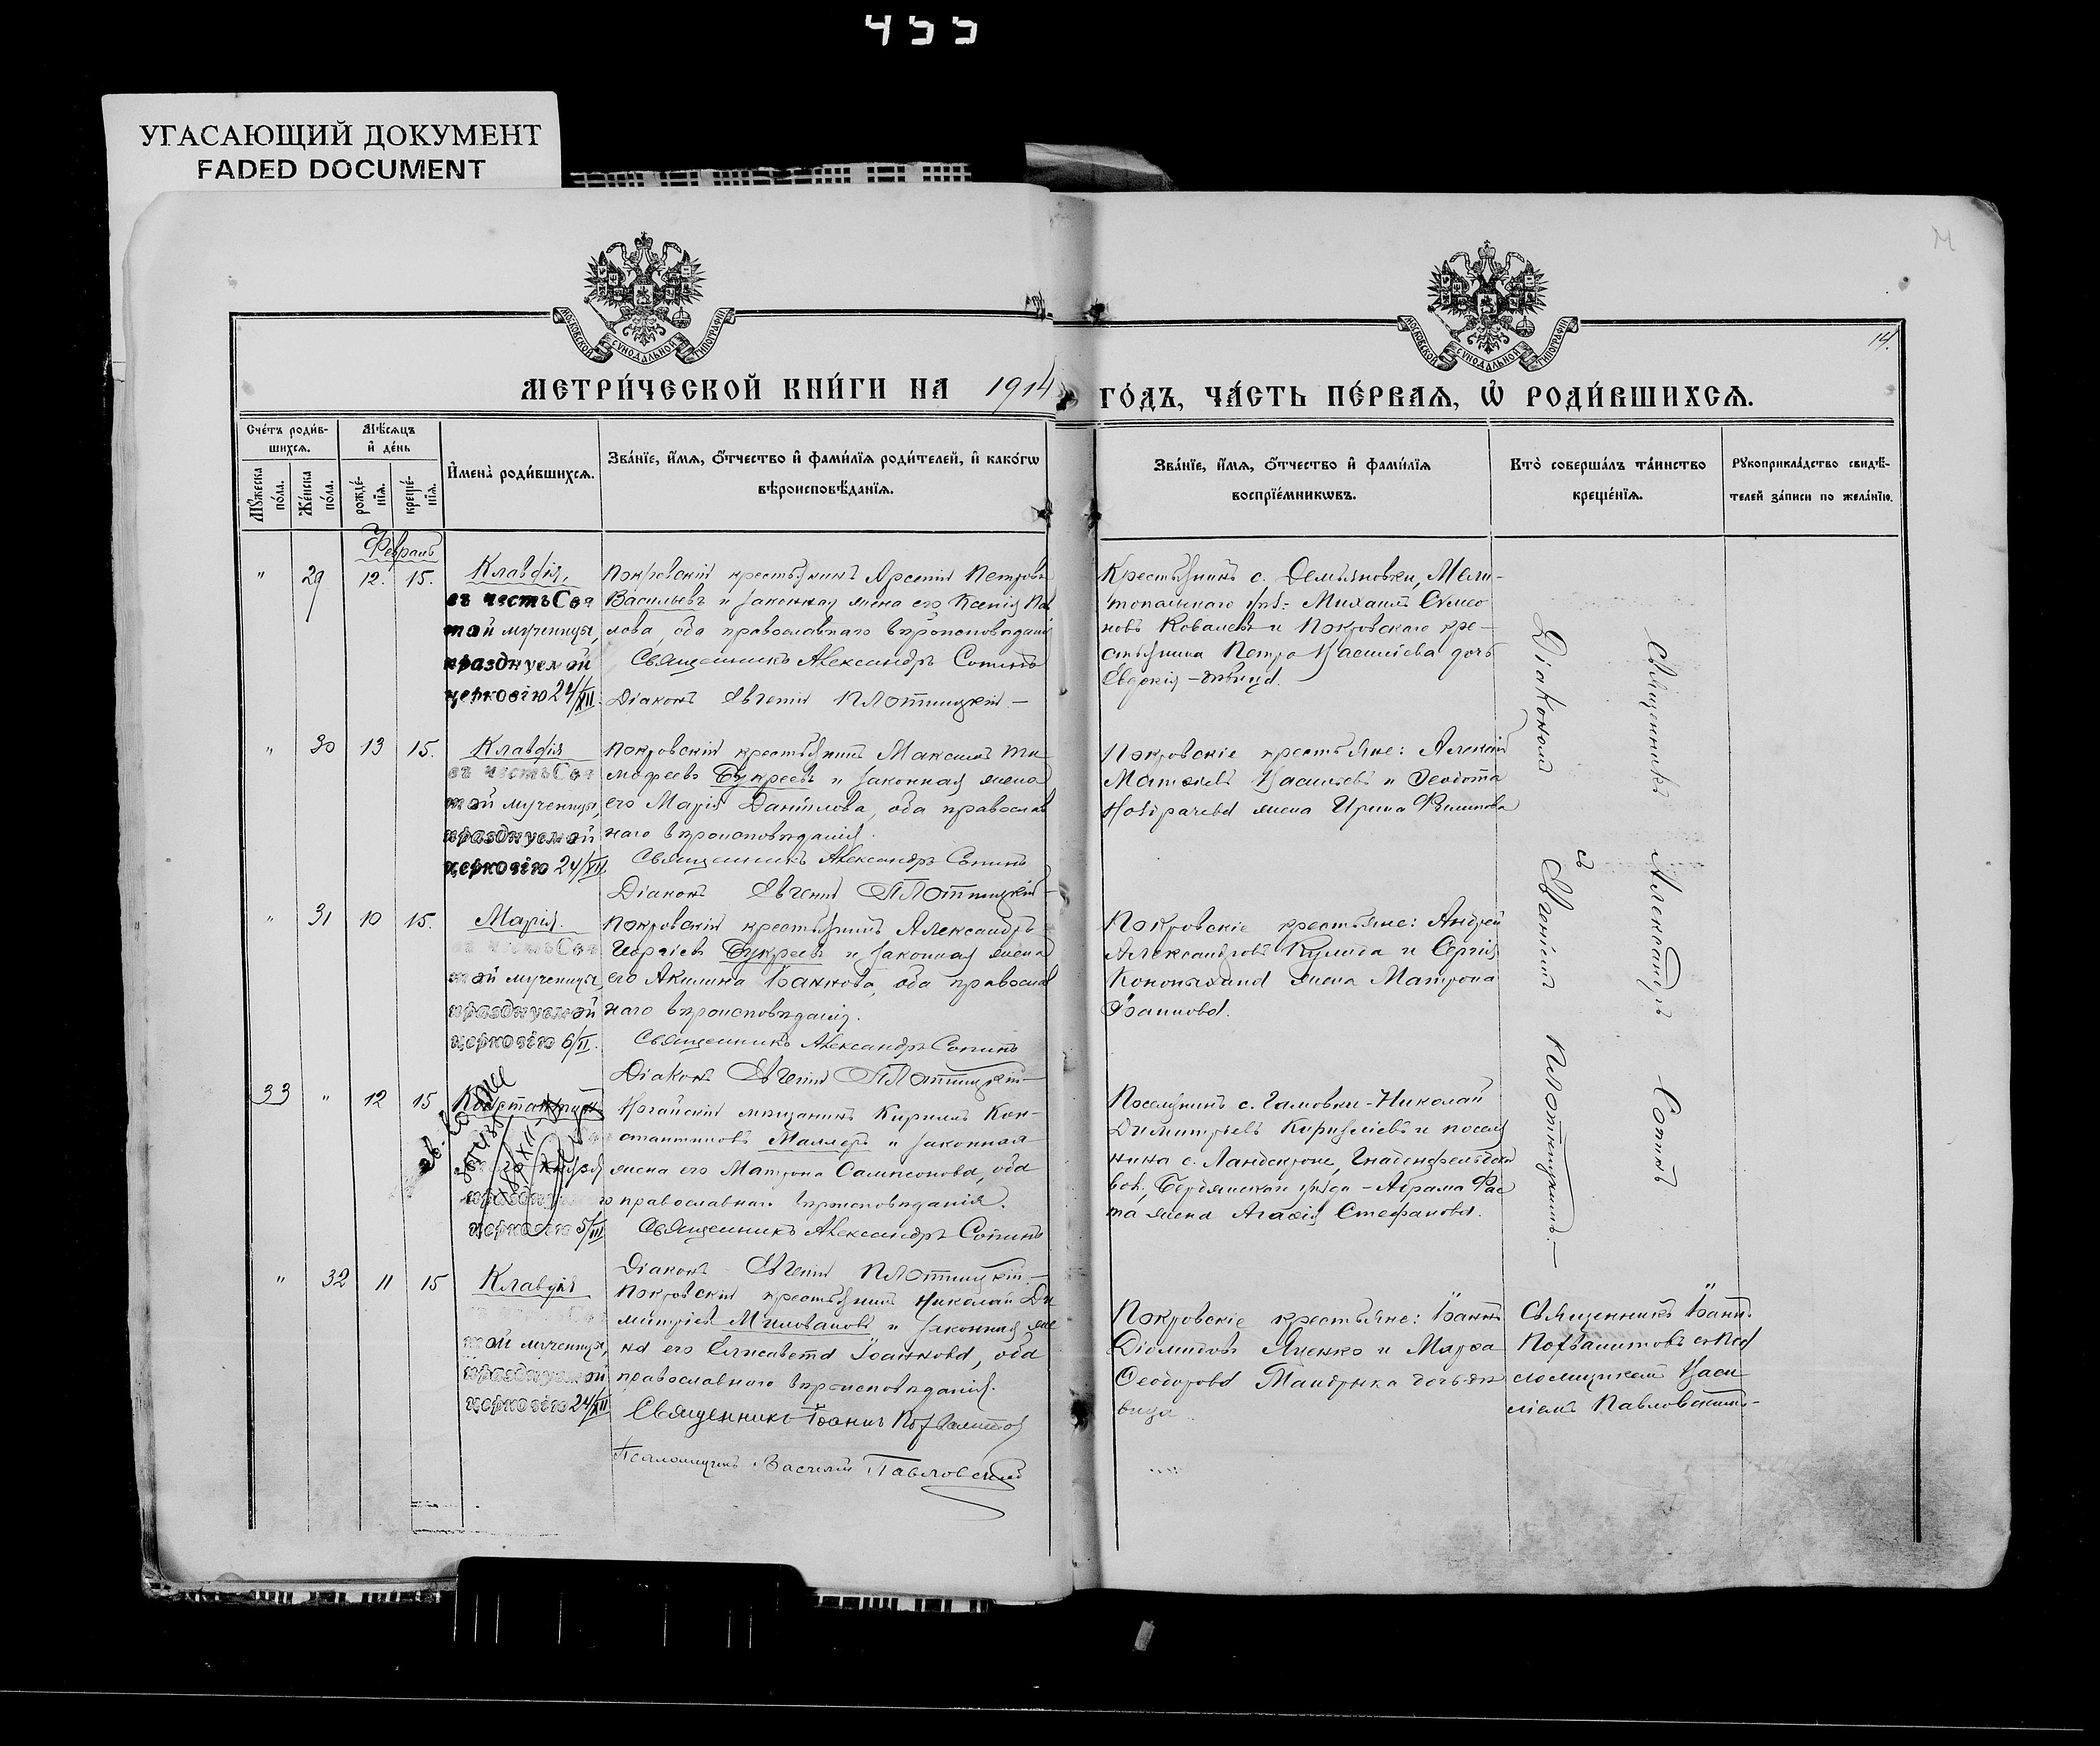 455
УГАСАЮЩИЙ ДОКУМЕНТ
FADED DOCUMENT
МОСКОВСКОЙ СѴНОДАЛЬНОЙ ТИПОГРАФІИ
МОСКОВСКОЙ СѴНОДАЛЬНОЙ ТИПОГРАФІИ
14.
МЕТРИ́ЧЕСКОЙ КНИ́ГИ НА 1914 ГО́ДЪ, ЧА́СТЬ ПЕ́РВАѦ, Ѡ҆ РОДИ́ВШИХСѦ.
Сче́тъ роди́в-
шихсѧ.
Мѣ́сѧцъ
и҆ де́нь
Мꙋ́жеска
по́ла.
Же́нска
по́ла.
рожде́-
нїѧ.
креще́-
нїѧ.
И҆мена̀ роди́вшихсѧ.
Зва́нїе, и҆́мѧ, ѻ҆́тчество и҆ фами́лїѧ роди́телей, и҆ како́гѡ
вѣроисповѣ́данїѧ.
Зва́нїе, и҆́мѧ, ѻ҆́тчество и҆ фами́лїѧ
воспрїе́мникѡвъ.
Кто̀ соверша́лъ та́инство
креще́нїѧ.
Рꙋкоприкла́дство свидѣ́-
телей за́писи по жела́нїю.
Февраль
" 29 12. 15. Клавдія,
въ честь Свя
той мученицы,
празднуемой
церковію 24/XII
Покровскій крестьянинъ Арсеній Петровъ
Васильевъ и законная жена его Ксенія Пав
лова, оба православнаго вѣроисповѣданія
Священникъ Александръ Сопинъ
Діаконъ Евгеній Плотницкій -
Крестьянинъ с. Демьяновки, Мели-
топольскаго у. Михаилъ Симео
новъ Ковалевъ и Покровскаго кре-
стьянина Петра Васильева дочь
Евдокія - дѣвица.
" 30 13 15. Клавдія
въ честь Свя
той мученицы,
празднуемой
церковію 24/XII
Покровскій крестьянинъ Максимъ Ти
мофеевъ Букреевъ и законная жена
его Марія Даніилова, оба православ
наго вѣроисповѣданія.
Священникъ Александръ Сопинъ
Діаконъ Евгеній Плотницкій -
Покровскіе крестьяне: Алексій
Матѳіевъ Васильевъ и Ѳеодота
жена Ирина Филипова
" 31 10 15. Марія.
въ честь Свя
той мученицы,
празднуемой
церковію 6/II.
Покровскій крестьянинъ Александръ
Георгіевъ Букреевъ и законная жена
его Акилина Іоаннова, оба православ
наго вѣроисповѣданія.
Священникъ Александръ Сопинъ
Діаконъ Евгеній Плотницкій -
Покровскіе крестьяне: Андрей
Александровъ Кулида и Сергія
Кононыхина жена Матрона
Іоаннова.
33 " 12 15 Константинъ
церковію 5/III
Ногайскій мѣщанинъ Кириллъ Кон-
стантиновъ Маллеръ и законная
жена его Матрона Сампсонова, оба
православнаго вѣроисповѣданія.
Священникъ Александръ Сопинъ
Діаконъ Евгеній Плотницкій. -
Поселянинъ с. Гамовки - Николай
Димитріевъ и посел
янина с. Ландскроне, Гнаденфельдской
вол., Бердянскаго уѣзда - Абрама Фас
та жена Агаѳія Стефанова.
Діакономъ Евгеніемъ Плотницкимъ. -
Священникъ Александръ Сопинъ
съ
" 32 11 15 Клавдія
той мученицы,
празднуемой
церковію 24/XII
Покровскій крестьянинъ Николай Ди
митріевъ Миловановъ и законная же
на его Елисавета Іоаннова, оба
православнаго вѣроисповѣданія.
Священникъ Іоаннъ Похвалитовъ
Псаломщикъ Василій Павловскій
Покровскіе крестьяне: Іоаннъ
Діомидовъ Яценко и Марѳа
Ѳеодорова Мандрыка дочь-дѣ
вица
Священникъ Іоаннъ
Похвалитовъ съ Пса
ломщикомъ Васи
ліемъ Павловскимъ. -